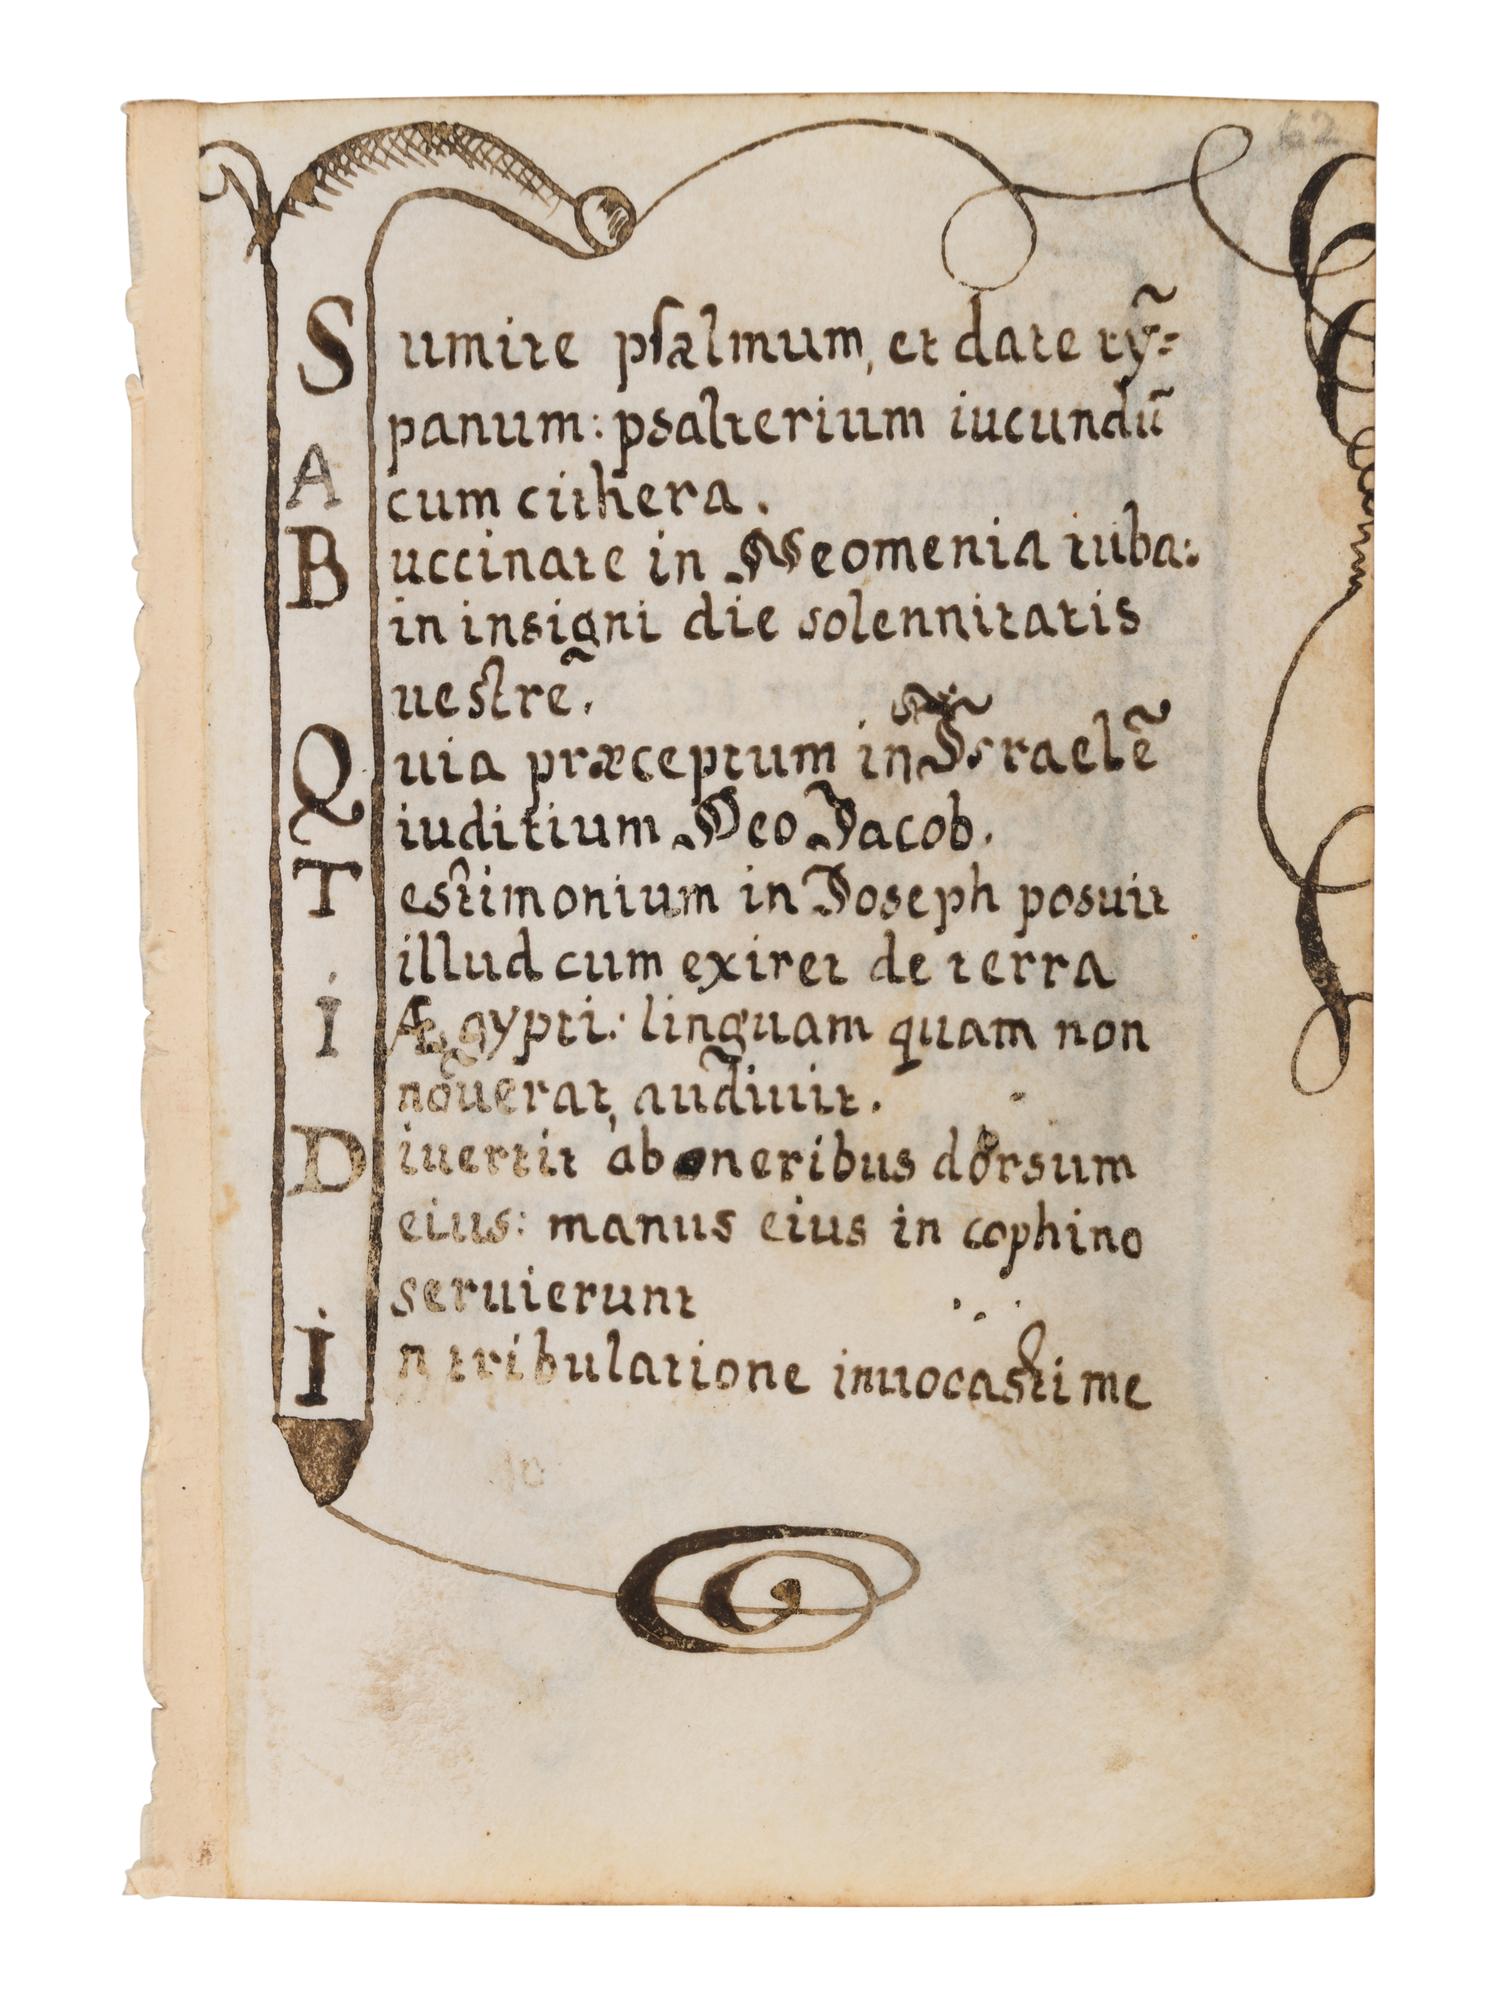 62
Sumite psalmum, et date tỹ=
A panum: psalterium iucundũ
cum cithera.
Buccinate in Neomenia tuba:
in insigni die solennitatis
uestrẽ.
Quia præceptum in Israel ẽ
iuditium Deo Jacob.
Testimonium in Joseph posuit
illud cum exiret de terra
i Ægypti: linguam quam non
nouerat, audiuit.
Diuertit ab oneribus dorsum
eius: manus eius in cophino
seruierunt
In tribulatione inuocasti me